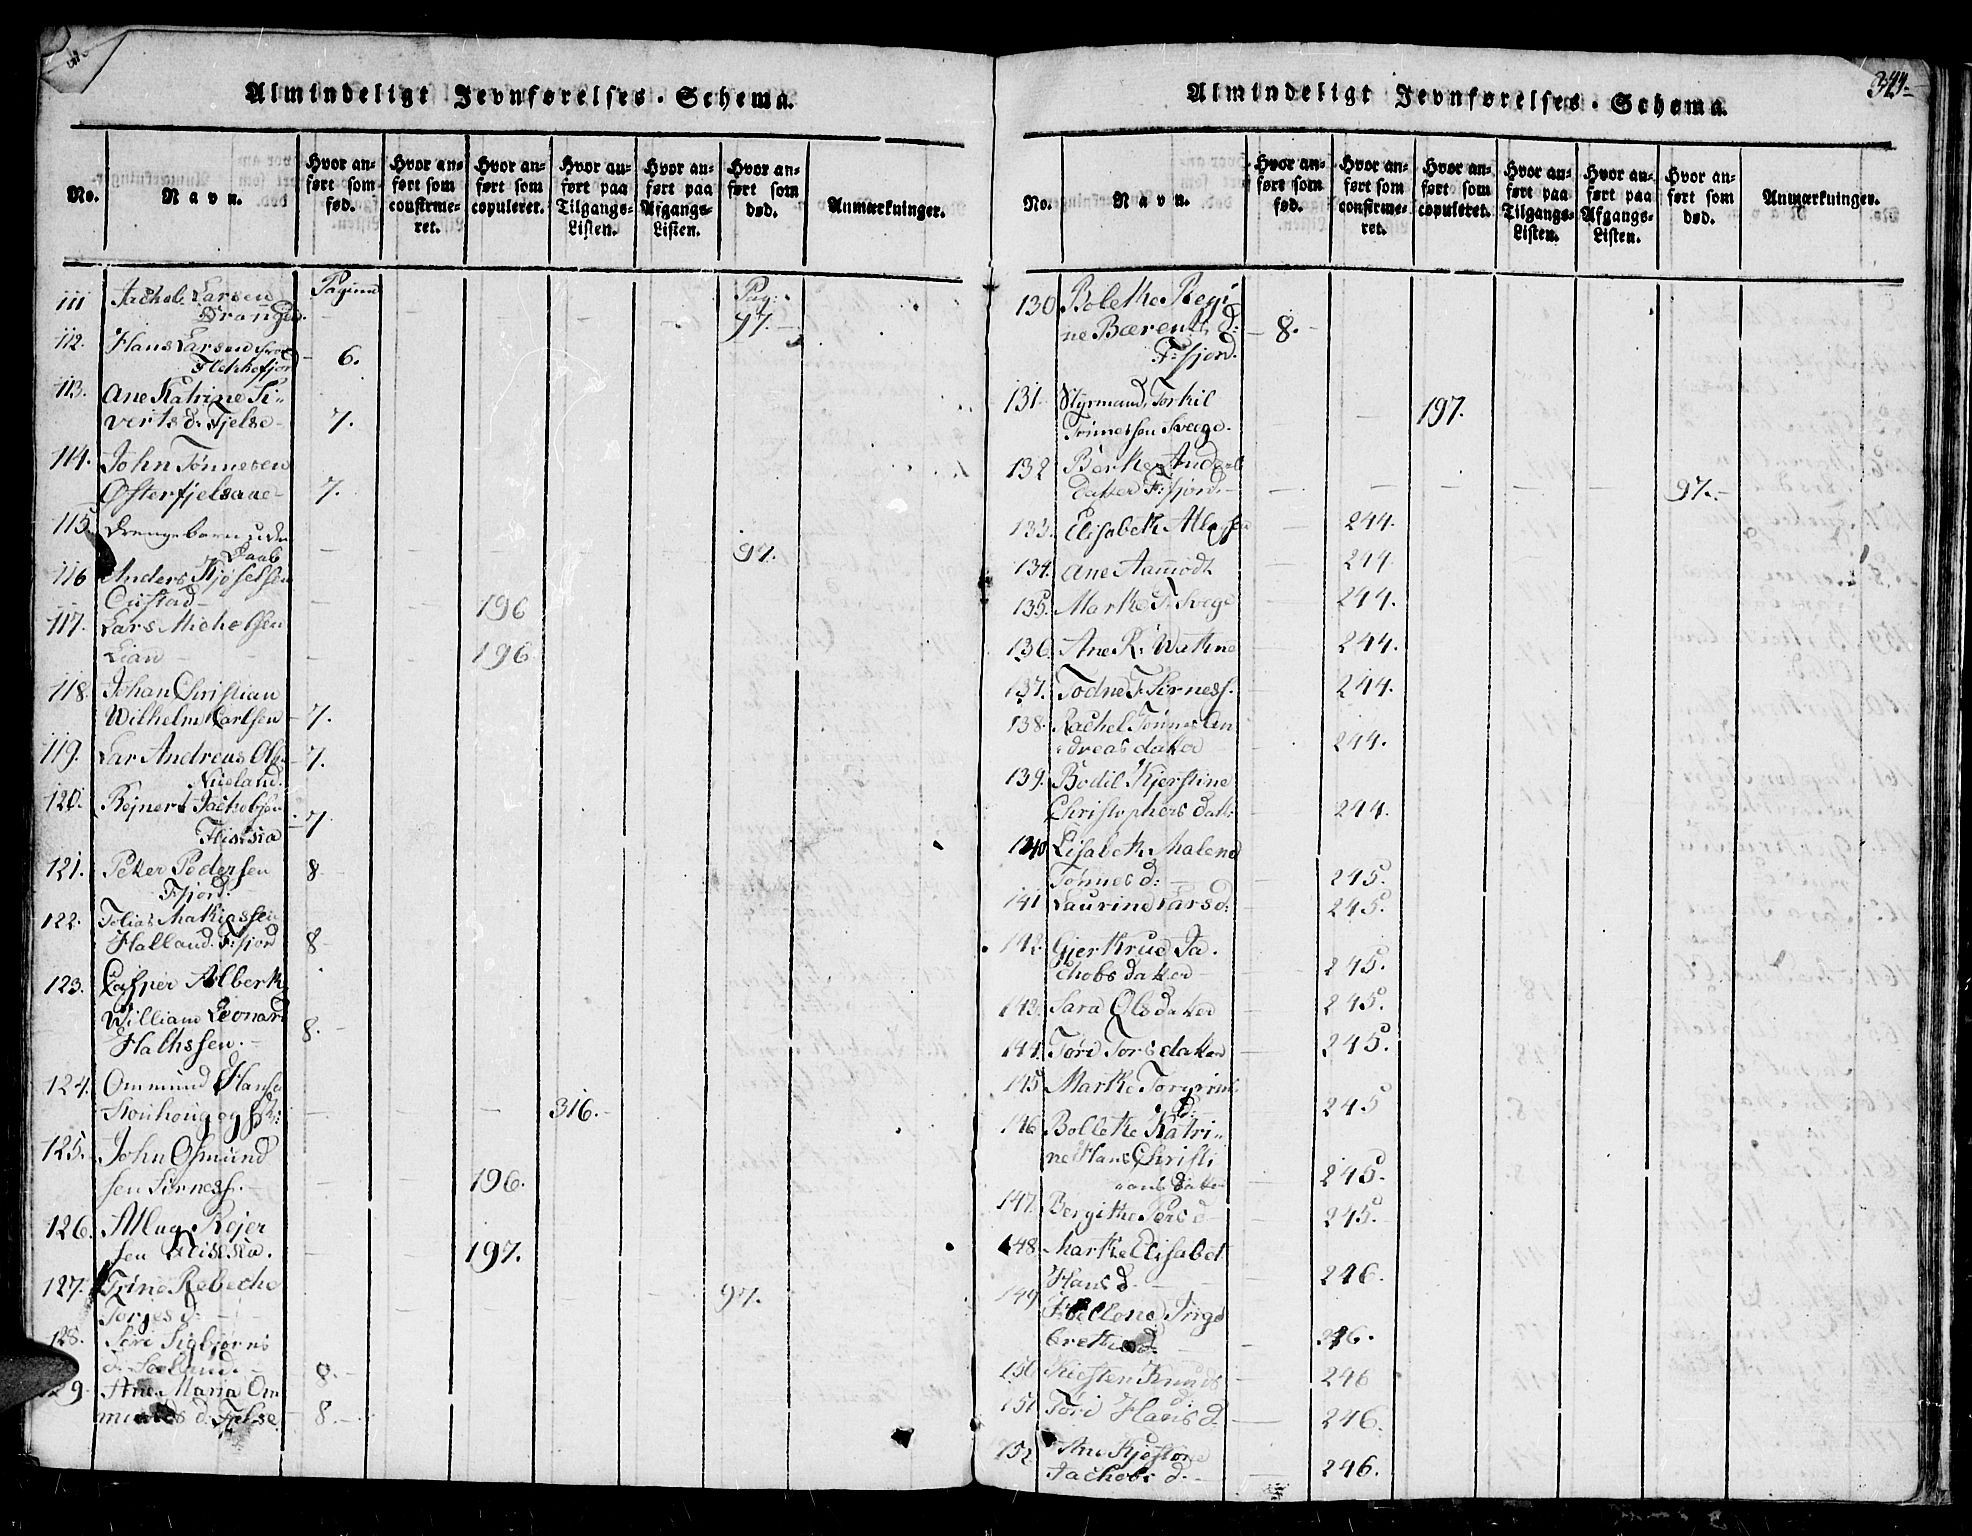 Almindeligt Jevnførelses-Schema.
No.
Navn.
Hvor anført som fød.
Hvor anført som confirmeret.
Hvor anført som copuleret.
Hvor anført paa Tilgangs-Listen.
Hvor anført paa Afgangs-Listen.
Hvor anført som død.
Anmærkninger.
111 Jachob Larsen Pagina Pag:
Drangeid. 97.
112. Hans Larsen
Flekkefjord 6.
113. Ane Katrine Si-
verts d: Fjelse 7.
114. John Tønnesen
Østerfjelsaae 7.
115. Drengebarn uden
Daab 97.
116 Anders Kjøselsen
196
117. Lars Michelsen
Lian 196
118. Johan Christian
Wilhelm Carlsen 7.
119. Lar Andreas Ols.
Nueland. 7.
120. Rejnert Jachobsen
Fliksia 7
121. Peter Pedersen 8
F:fjord.
122. Tobias Mathiassen
Halland. F:fjord 8
123. Casper Alberth
William Leonard
Halhssen. 8.
124. Ommund Hansen
316.
125. John Osmund
sen Sirness. 196.
126. Atlag Rejer
sen Fliksia. 197.
127. Trine Rebeche
Torjes d. 97.
128. Siri Sigbjørns
d. 8.
129 Ane Maria Om
munds d: Fjelse 8.
Almindeligt Jevnførelses-Schema.
344.
No.
Navn.
Hvor anført som fød.
Hvor anført som confirmeret.
Hvor anført som copuleret.
Hvor anført paa Tilgangs-Listen.
Hvor anført paa Afgangs-Listen.
Hvor anført som død.
Anmærkninger.
130 Bolethe Regi
ne Bærents d: 8.
F:fjord.
131 Styrmand Torkil
Svege. 197.
132 Berthe Anders
datter F:fjord. 97.
133. Elisabeth Atlagsen 244.
134. Ane Aamodt 244
135. Marthe T. Svege 244.
136 Ane K. 244.
137. Todne T. Sirness. 244.
138. Rachel Tønnes An
dreas datter 244.
139. Bodil Kjerstine
Christophers dat: 244.
140 Lisabeth Malene
Tønnes d: 245.
141 Laurine Lars d: 245.
142. Gjertrud Ja
chobs datter 245.
143. Sara Ols datter 245.
144. Tøri Tors datter 245.
145 Marthe Torgrims
d: 245
146 Bollethe Katri-
ne Hans Christi
ans datter 245.
147. Bergithe Pers d 245.
148. Marthe Elisabet
Hans d. 246.
149 Hellene Inge
brethsd. 246.
150 Kiersten Knuds
d: 246
151 Tøri Hans d. 246.
152 Ane Kjestine
Jachobs d. 246.